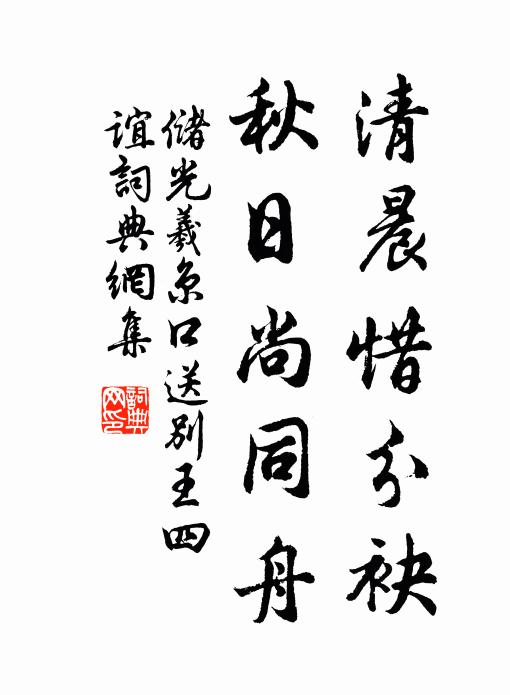 清晨惜分袂
秋日尚同舟
儲光羲京口送別王四
誼詞典網集
詞典网印